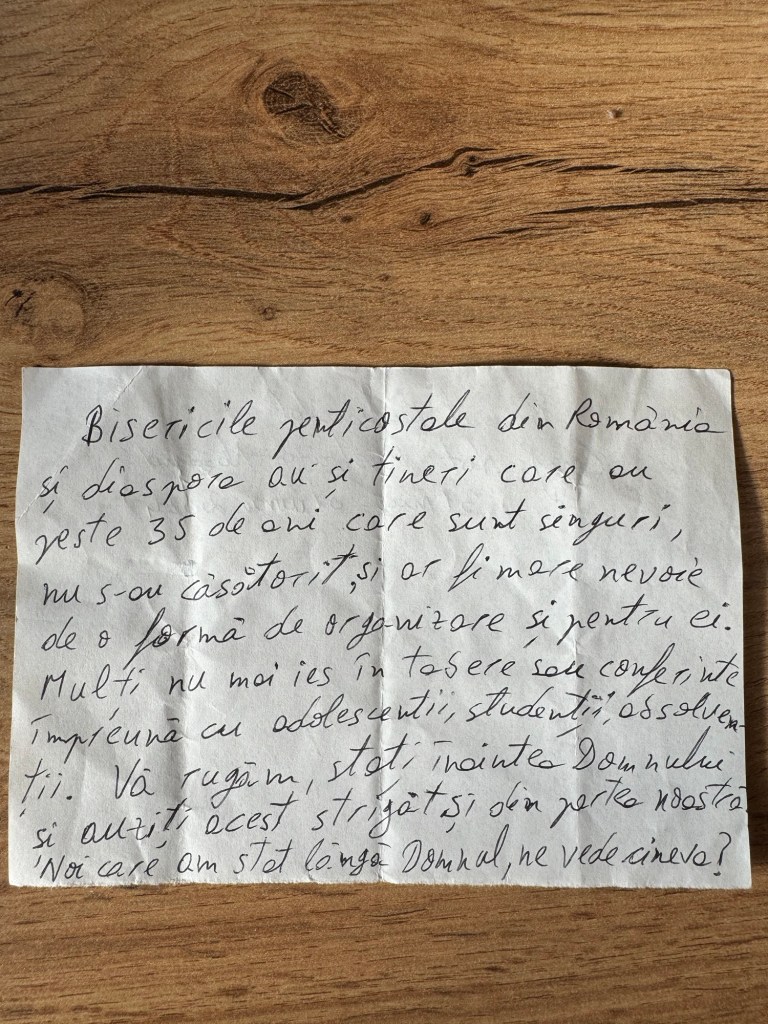 Bisericile penticostale din România
și diaspora au și tineri care au
peste 35 de ani care sunt singuri,
nu s-au căsătorit, și ar fi mare nevoie
de o formă de organizare și pentru ei.
Mulți nu mai ies în tabere sau conferințe
împreună cu adolescenții, studenții, absolven-
ții. Vă rugăm, stați înaintea Domnului
și auziți acest strigăt și din partea noastră
Noi care am stat lângă Domnul, ne vede cineva?